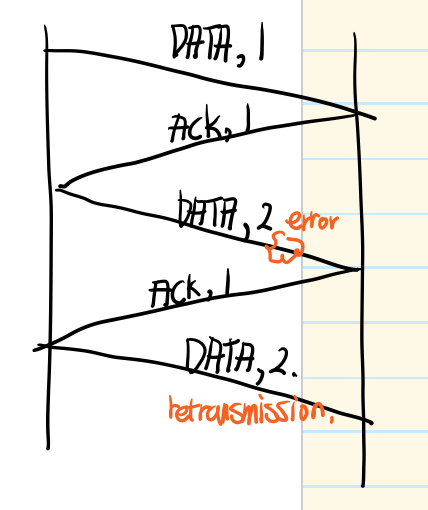 DATA, 1
ACK, 1
DATA, 2
error
ACK, 1
DATA, 2.
retransmission.